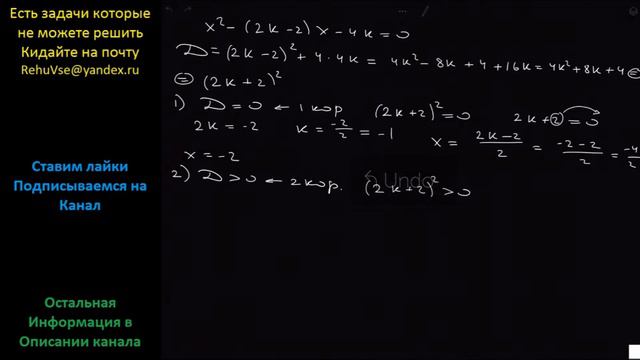 Есть задачи которые
не можете решить
Кидайте на почту
RehuVse@yandex.ru
Ставим лайки
Подписываемся на
Канал
Остальная
Информация в
Описании канала
x² - (2k-2)x - 4k = 0
D = (2k-2)² + 4·4k = 4k² - 8k + 4 + 16k = 4k² + 8k + 4 =
= (2k+2)²
1) D = 0 ← 1 кор (2k+2)² = 0 2k+2 = 0
2k = -2 k = -2/2 = -1 x = (2k-2)/2 = (-2-2)/2 = -4/2
x = -2
2) D > 0 ← 2 кор. (2k+2)² > 0
Undo